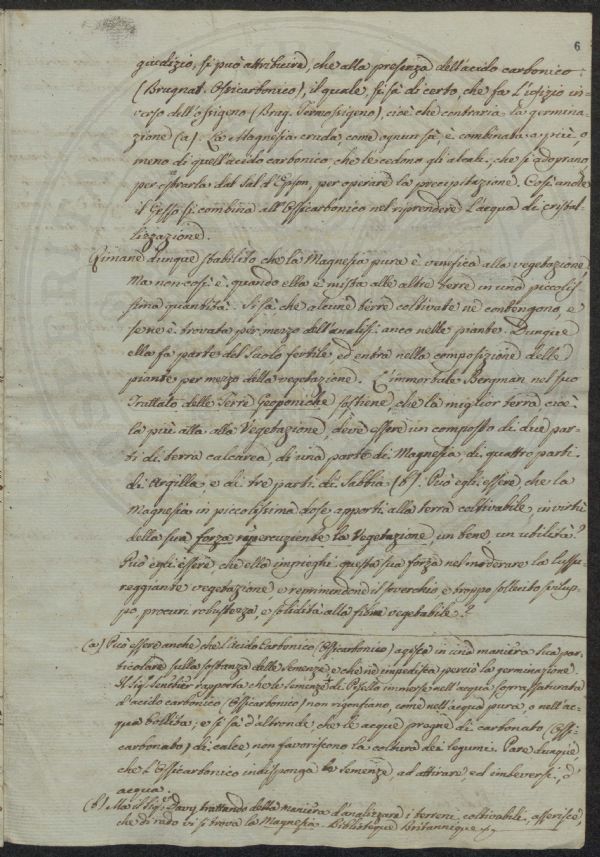 6
giudizio, si può attribuire, che alla presenza dell'acido carbonico
(Brugnat. Ossicarbonico), il quale, si sà di certo, che fa l'ufizio in-
verso dell'ossigeno (Brug. Termossigeno), cioè che contraria la germina-
zione (a). La Magnesia cruda, come ognun sà è combinata a più, o
meno di quell'acido carbonico che le cedono gli alcali, che si adoprano
per estrarla dal Sal d'Epson, per operare la precipitazione. Così anche
il Gesso si combina all'Ossicarbonico nel riprendere l'acqua di cristal-
lizzazione.
Rimane dunque stabilito che la Magnesia pura è venefica alla vegetazione,
Ma non così è, quando ella è mista alle altre terre in una piccolis-
sima quantità. Si sà, che alcune terre coltivate ne contengono, e
se ne è trovata per mezzo dell'analisi anco nelle piante. Dunque
ella fa parte del Suolo fertile ed entra nella composizione delle
piante per mezzo della vegetazione. L'immortale Bergman nel suo
Trattato delle Terre Geoponiche sostiene, che la miglior terra cioè
la più atta alla Vegetazione, deve essere un composto di due par-
ti di terra calcarea, di una parte di Magnesia, di quattro parti
di Argilla, e di tre parti di Sabbia (b). Può egli essere, che la
Magnesia in piccolissima dose apporti alla terra coltivabile, in virtù
della sua forza ripercuziente la Vegetazione, un bene, un utilità?
Può egli essere che ella impieghi questa sua forza nel moderare la lussu-
reggiante vegetazione, e reprimendone il soverchio e troppo sollecito svilup-
po, procuri robustezza, e solidità alla fibra vegetabile?
(a) Può essere anche che l'Acido Carbonico (Ossicarbonico) agisca in una maniera sua par-
ticolare sulla sostanza delle Semenze e che ne impedisca perciò la germinazione.
Il Sig. Senebier rapporta che le semenze di Pisello immerse nell'acqua soprassaturata
d'acido carbonico (Ossicarbonico) non rigonfiano, come nell'acqua pura, o nell'ac-
qua bollita; e si sà d'altronde che le acque pregne di carbonato (Ossi-
carbonato) di calce, non favoriscono la coltura dei legumi. Pare dunque,
che l'Ossicarbonico indisponga le semenze, ad attirare, ed imbeversi, d'
acqua.
(b) Ma il Sig. Davy trattando della maniera d'analizzare i terreni coltivabili, asserisce,
che di rado vi si trova la Magnesia. Biblioteque Britannique